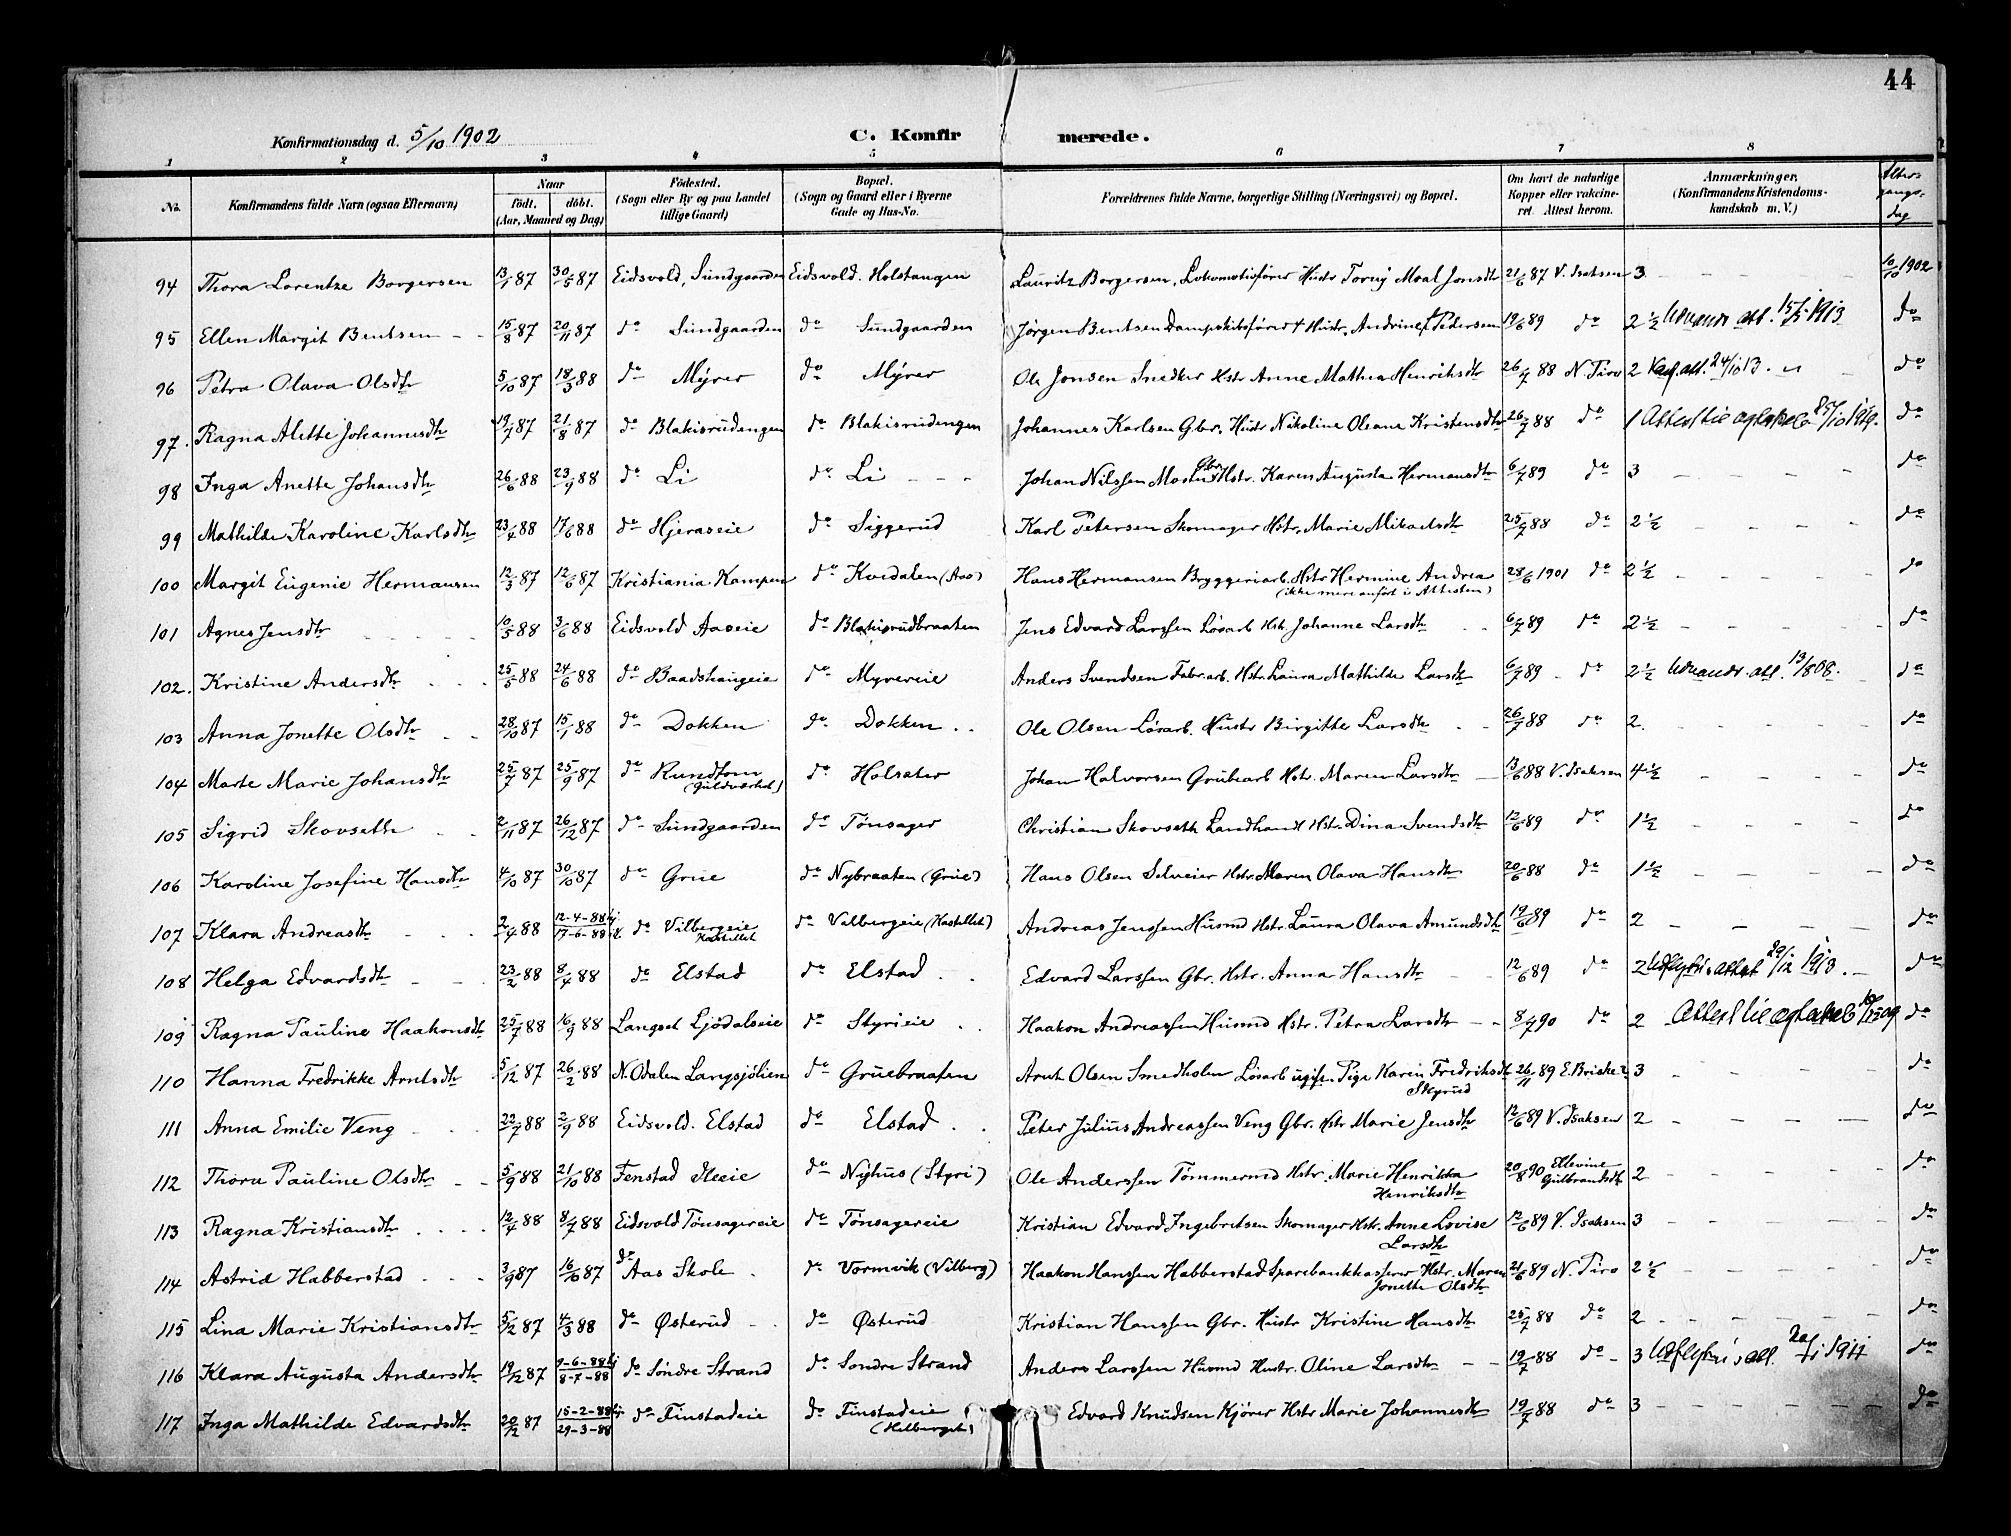 44
Konfirmationsdag d. 5/10 1902
C. Konfirmerede.
1 2 3 4 5 6 7 8
No. | Konfirmandens fulde Navn (ogsaa Efternavn) | Naar født. døbt. (Aar, Maaned og Dag) | Fødested. (Sogn eller By og paa Landet tillige Gaard) | Bopæl. (Sogn og Gaard eller i Byerne Gade og Hus-No. | Forældrenes fulde Navne, borgerlige Stilling (Næringsvei) og Bopæl. | Om havt de naturlige Kopper eller vaccineret Attest herom. | Anmærkninger, (Konfirmandens Kristendomskundskab m. V.) | Altergangsdag
94 Thora Lorentze Borgersen 13/1 87 30/5 87 Eidsvold, Sundgaarden Eidsvold. Holstangen Lauritz Borgersen, Lokomotivfører Hustr Torny Moal Jonsdtr 21/6 87 V. Isaksen 3 10/10 1902
95 Ellen Margit Bentsen 15/8 87 20/11 87 do Sundgaarden do Sundgaarden Jørgen Bentsen Dampskibsfører & Hustr. Andrine Pedersen 19/6 89 do 2 1/2 Udvandr. att. 1913 do
96 Petra Olava Olsdtr 5/10 87 18/3 88 do Myrer do Myrer Ole Jonsen Snedker Hstr Anne Mathea Henriksdtr 26/7 88 N. Tiro 2 att. 24/10 13. do
97. Ragna Alette Johannesdtr 19/7 87 21/8 87 do Blakisrudengen do Blakisrudengen Johannes Karlsen Gbr. Hustr Nikoline Oleane Kristensdtr 26/7 88 do 1 Attest 1919. do
98 Inga Anette Johansdtr 26/6 88 23/9 88 do Li do Li Johan Nilssen Gbr. Hstr. Karen Augusta Hermansdtr 6/7 89 do 3 do
99 Mathilde Karoline Karlsdtr 23/4 88 17/6 88 do Hjeraseie do Siggerud Karl Petersen Skomager Hstr. Marie Mikaelsdtr 25/7 88 do 2 1/2 do
100 Margit Eugenie Hermansen 12/3 87 12/6 87 Kristiania Kampen do Kvidalen (Aas) Hans Hermansen Bryggeriarb. Hstr Hermine Andrea (ikke mere anført i Attesten) 28/6 1901 do 2 1/2 do
101 Agnes Jensdtr 10/5 88 3/6 88 Eidsvold Aaseie do Blakisrudbraaten Jens Edvard Larssen Løsarb Hstr. Johanne Larsdtr 6/7 89 do 2 1/2 do
102. Kristine Andersdtr 25/5 88 24/6 88 do Baadshaugeie do Myrereie Anders Svendsen Fabr.arb. Hstr. Laura Mathilde Larsdtr 6/7 89 do 2 1/2 Udvandr. att. 13/8 08. do
103 Anna Jonette Olsdtr 28/10 87 15/1 88 do Dokken do Dokken Ole Olsen Løsarb. Hustr Birgitte Larsdtr 26/7 88 do 2. do
104 Marte Marie Johansdtr 25/7 87 25/9 87 do Rundtom (Guldværket) do Holsæter Johan Halvorsen Grubearb Hstr. Maren Larsdtr 13/6 88 V. Isaksen 4 1/2 do
105 Sigrid Skovseth 2/11 87 26/12 87 do Sundgaarden do Tønsager Christian Skovseth Landhandl Hstr. Dina Svendsdtr 12/6 89 do 1 1/2 do
106 Karoline Josefine Hansdtr 4/10 87 30/10 87 do Grue do Nybraaten (Grue) Hans Olsen Selveier Hstr. Maren Olava Hansdtr 20/6 88 do 1 1/2 do
107 Klara Andreasdtr 2/4 88 12-4-88 hj 17-6-88 do Vilbergeie Kastellet do Vilbergeie (Kastellet) Andreas Jenssen Husmd Hstr. Laura Olava Amundsdtr 19/6 89 do 2 do
108 Helga Edvardsdtr 23/2 88 8/4 88 do Elstad do Elstad Edvard Larssen Gbr. Hstr. Anna Hansdtr 12/6 89 do 2 attest 1913. do
109 Ragna Pauline Haakonsdtr 25/7 88 16/9 88 Langset Ljødalseie do Styrieie Haakon Andreassen Husmd Hstr. Petra Larsdtr 8/7 90 do 2 Attest 09 do
110 Hanna Fredrikke Arntsdtr 5/12 87 26/2 88 N. Odalen Langsjølien do Gruebraaten Arnt Olsen Smedholen Løsarb ugift Pige Karen Fredriksdtr Skyrud 26/11 89 3 do
111 Anna Emilie Veng 22/7 88 2/9 88 Eidsvold. Elstad do Elstad Peter Julius Andreassen Veng Gbr. Hstr Marie Jensdtr 12/6 89 V. Isaksen 2 do
112 Thora Pauline Olsdtr 5/9 88 21/10 88 Fenstad do Nyhus (Styri) Ole Anderssen Tømmermd Hstr. Marie Henrikka Henriksdtr 20/8 90 Ellevine Gulbrandsdtr 2 do
113 Ragna Kristiansdtr 12/4 88 8/7 88 Eidsvold Tønsagereie do Tønsagereie Kristian Edvard Ingebretsen Skomager Hstr. Anne Lovise Larsdtr 12/6 89 V. Isaksen 3 do
114 Astrid Habberstad 3/9 87 16/10 87 do Aas Skole do Vormvik (Vilberg) Haakon Hanssen Habberstad Sparebankkasserer Hstr. Maren Jonette Olsdtr 21/6 89 N. Tiro 2 1/2 do
115 Lina Marie Kristiansdtr 5/12 87 4/3 88 do Østerud do Østerud Kristian Hanssen Gbr. Hustr Kristine Hansdtr 25/7 88 do 2 do
116 Klara Augusta Andersdtr 19/12 87 9-6-88 hj 8-7-88 do Søndre Strand do Søndre Strand Anders Larssen Husmd Hustr. Oline Larsdtr 19/7 88 do 3 att. do
117 Inga Mathilde Edvardsdtr 20/12 87 15-2-88 hj 29-3-88 do Finstadeie do Finstadeie (Helberget) Edvard Knudsen Kjører Hstr Marie Johannesdtr 19/7 88 do 3 do